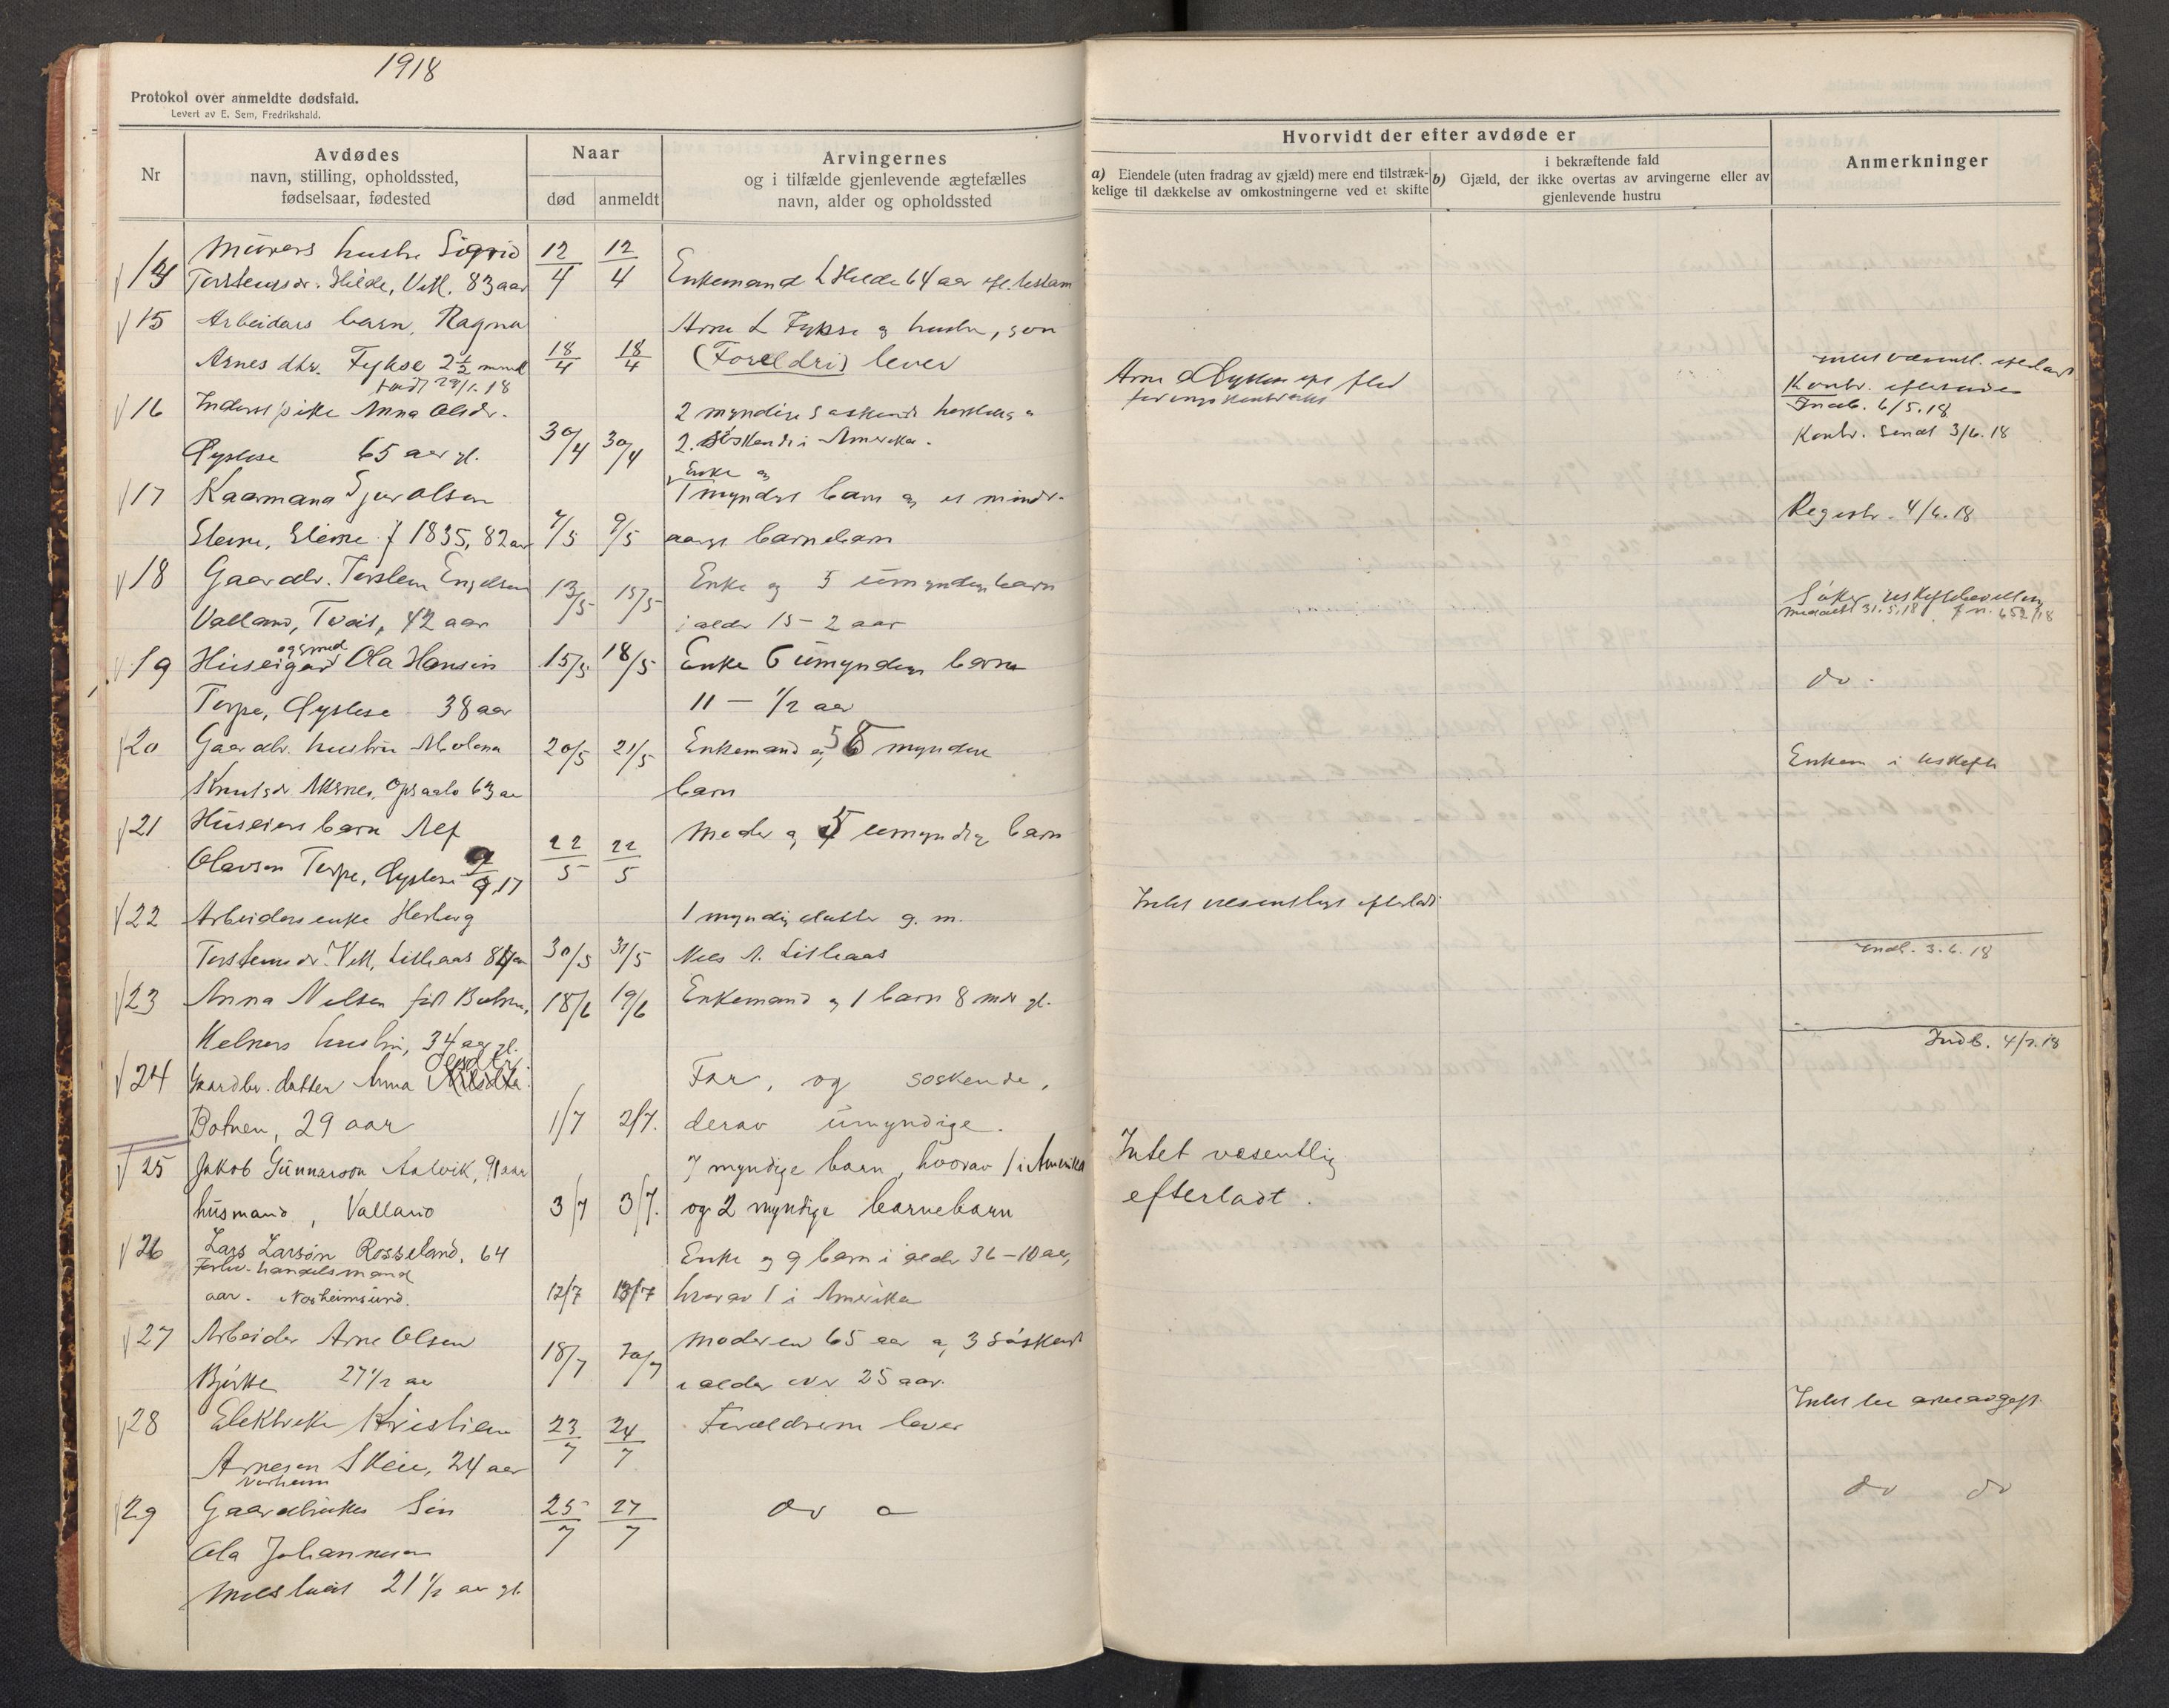 1918
Protokol over anmeldte dødsfald.
Levert av E. Sem, Fredrikshald.
Nr
Avdødes
navn, stilling, opholdssted,
fødselsaar, fødested
Naar
død
anmeldt
Arvingernes
og i tilfælde gjenlevende ægtefælles
navn, alder og opholdssted
Hvorvidt der efter avdøde er
a) Eiendele (uten fradrag av gjæld) mere end tilstræk-
kelige til dækkelse av omkostningerne ved et skifte
i bekræftende fald
b) Gjæld, der ikke overtas av arvingerne eller av
gjenlevende hustru
Anmerkninger
14 Murers hustru Sigrid 12/4 12/4
Torsteinsdr. Hilde, Vik, 83 aar Enkemand L Hilde 64 aar
15 Arbeidars barn, Ragna Arne L Fykse og hustru, som
Arnes dtr. Fykse 2½ mnd 18/4 18/4 (Foreldri) lever
født 28/1.18
Kontr.
16 Inderstpike Anna Olsdr. 2 myndige
Indb. 6/5.18
Øystese 65 aar gl. 30/4 30/4 2 søskende i Amerika.
Kontr. sendt 3/6.18
Enke og
17 Kaarmand Sjur Olsen 1 myndigt barn og et minde-
Registr. 4/6.18
Steine, Steine f 1835, 82 aar 7/5 9/5 aarigt barnebarn
18 Gaardbr. Torstein Engelsen 13/5 15/5 Enke og 5 umyndig barn
Valland, Tveit, 42 aar i alder 15 – 2 aar
meddelt 31.5.18 j.n. 652/18
og smed
19 Huseigar Ola Hansen 15/5 18/5 Enke 6 umyndige barn
do.
Torpe, Øystese 38 aar 11 – 1/2 aar
20 Gaardbr. hustru 20/5 21/5 Enkemand og 5 myndige
Enkem i uskifte
Knutsdr Aksnes, Opsaalo 63 aar barn
21 Huseiers barn Alf 22/5 22/5 Moder og 5 umyndig barn
Olavson Torpe, Øystese 9/9.17
22 Arbeidersenke Herborg 1 myndig datter g. m.
Intet væsentligt efterladt
Torsteinsdr. Vik, Lislaas 84 aar 30/5 31/5 Nils A. Lislaas
Indb. 3.6.18
23 Anna Nilsen født Botnen, 18/6 19/6 Enkemand og 1 barn 8 mdr gl.
Kelners hustru, 34 aar gl.
Indb. 4/7.18
Olsdtr.
24 Gaardbr. datter Anna Far, og soskende,
Botnen, 29 aar 1/7 2/7. derav umyndige.
25 Jakob Gunnarson Aalvik, 91 aar 7 myndige barn, hvorav 1 i Amerika
Intet væsentlig
husmand, Valland 3/7 3/7. og 2 myndige barnebarn
efterladt.
26 Lars Larson Rosseland, 64 Enke og 9 barn i alder 36 – 10 aar,
Forhv. handelsmand
aar. Norheimsund. 12/7 13/7 hvorav 1 i Amerika
27 Arbeider Arne Olsen 18/7 20/7 Moderen 65 aar og 3 søskend
Bjørke 27 1/2 aar i alder over 25 aar.
28 Elektrike Kristian 23/7 24/7 Forældrene lever
Intet
Arnesen Skeie, 24 aar
Norheim
29 Gaardbrukes søn 25/7 27/7 do
do do
Ola Johannesen
21 1/2 aar gl.